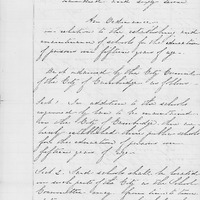 hundred and sixty seven
An Ordinance
in relation to the establishing and
maintenance of schools for the education
of persons over fifteen years of age.
Be it ordained by the City Council
of the City of Cambridge as follows
Sect 1. In addition to the schools
required by law to be maintained
in the City of Cambridge there are
hereby established schools
for the education of persons over
fifteen years of age.
Sect 2. Said schools shall be located
in such parts of the City as the School
Committee may